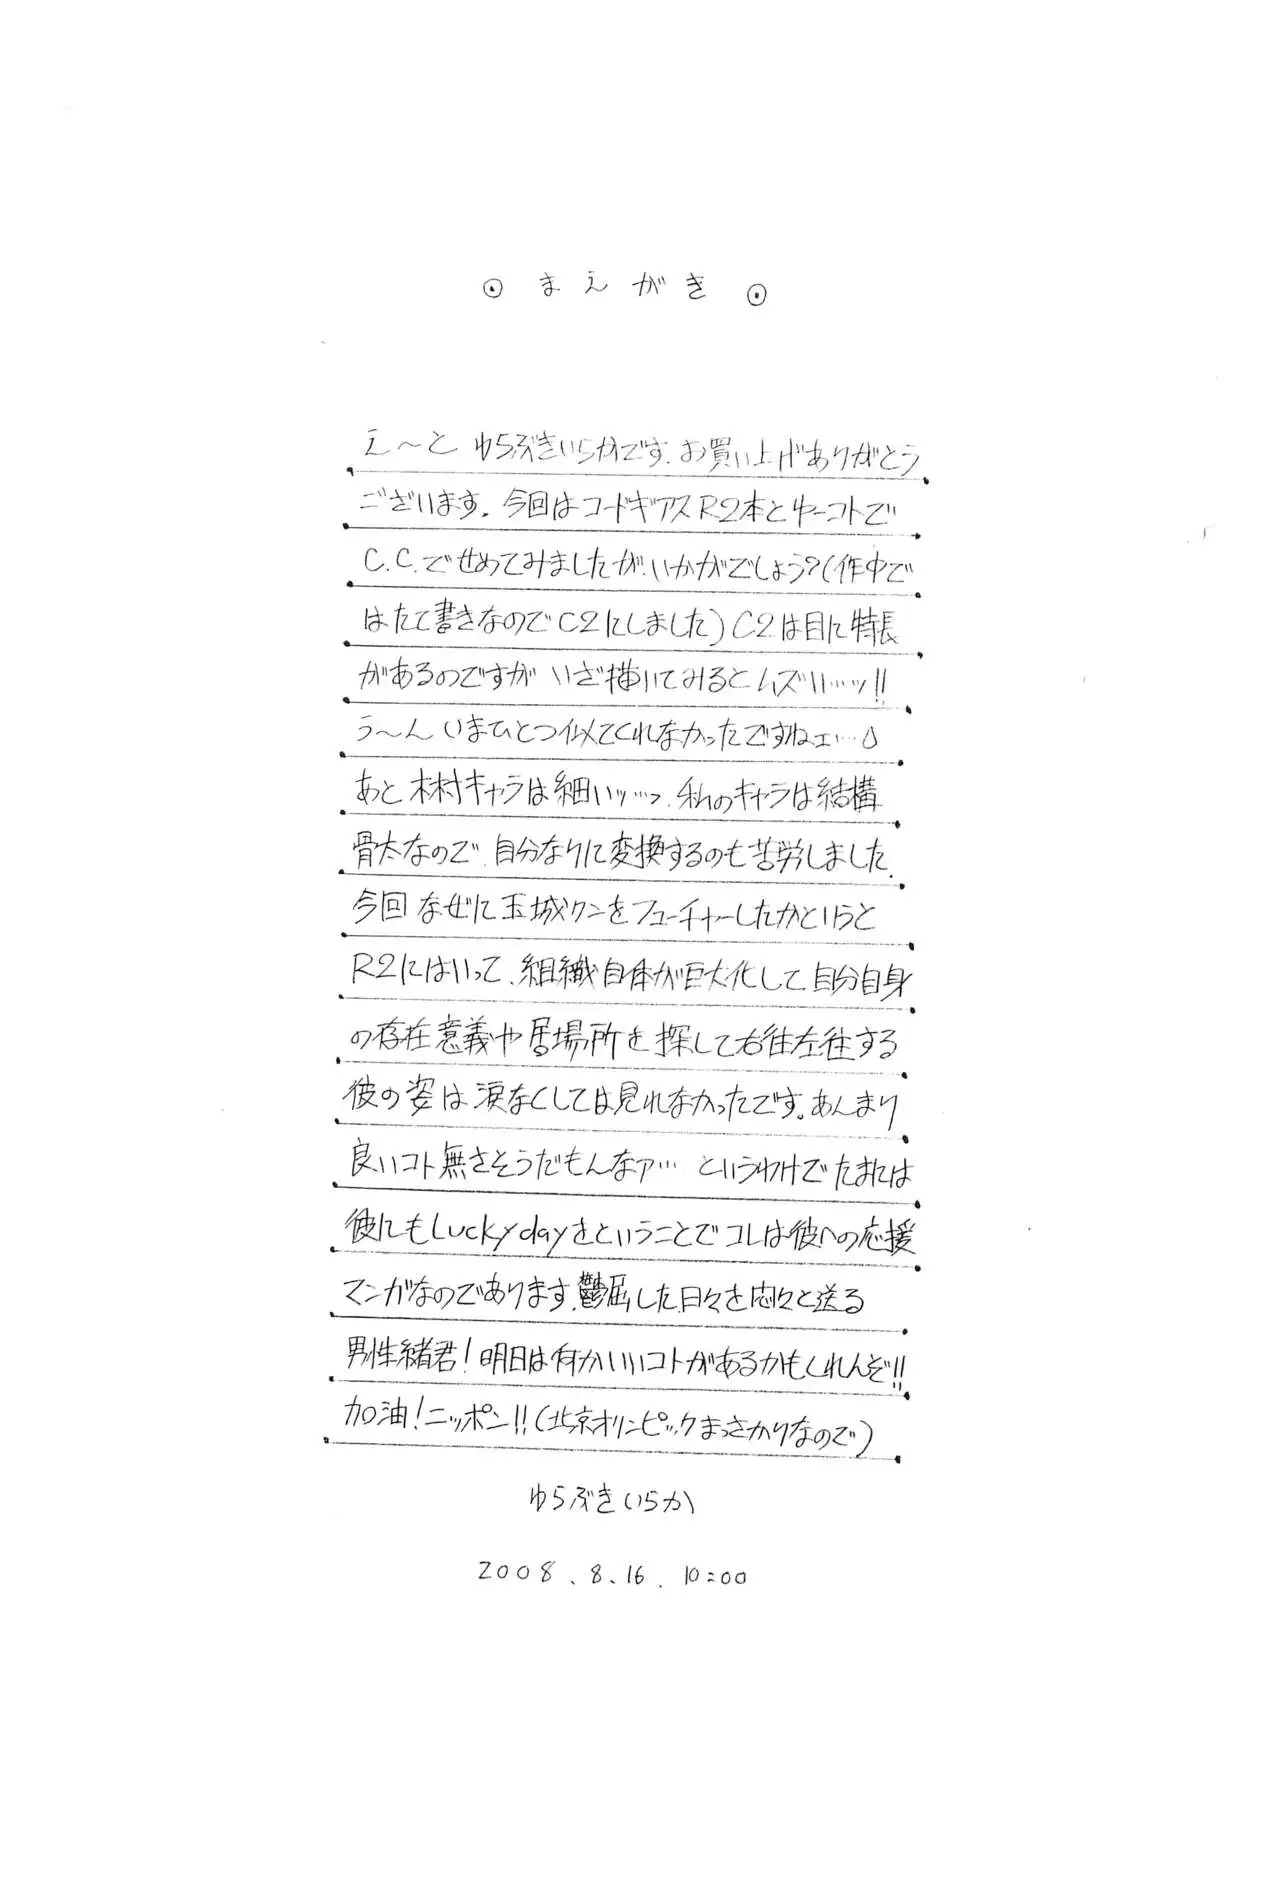 ⊙ まえがき ⊙
え～と ゆらぶきいらかです。お買い上げありがとう
ございます。今回はコードギアスR2本とゆーコトで
C.C.でせめてみましたが、いかがでしょう?(作中で
はたて書きなのでC2にしました)C2は目に特長
があるのですが いざ描いてみるとムズい…ッ!!
う～ん いまひとつ似てくれなかったですねェ…
あと 木村キャラは細いッ…っ、私のキャラは結構
骨太なので、自分なりに変換するのも苦労しました。
今回 なぜに玉城クンをフューチャーしたかというと
R2にはいって、組織自体が巨大化して自分自身
の存在意義や居場所を探して右往左往する
彼の姿は涙なくしては見れなかったです。あんまり
良いコト無さそうだもんなァ… というわけでたまには
彼にもLucky dayをということでコレは彼への応援
マンガなのであります。鬱屈した日々を悶々と送る
男性緒君!明日は何かいいコトがあるかもしれんぞ!!
加油!ニッポン!!(北京オリンピックまっさかりなので)
ゆらぶきいらか
2008.8.16. 10:00